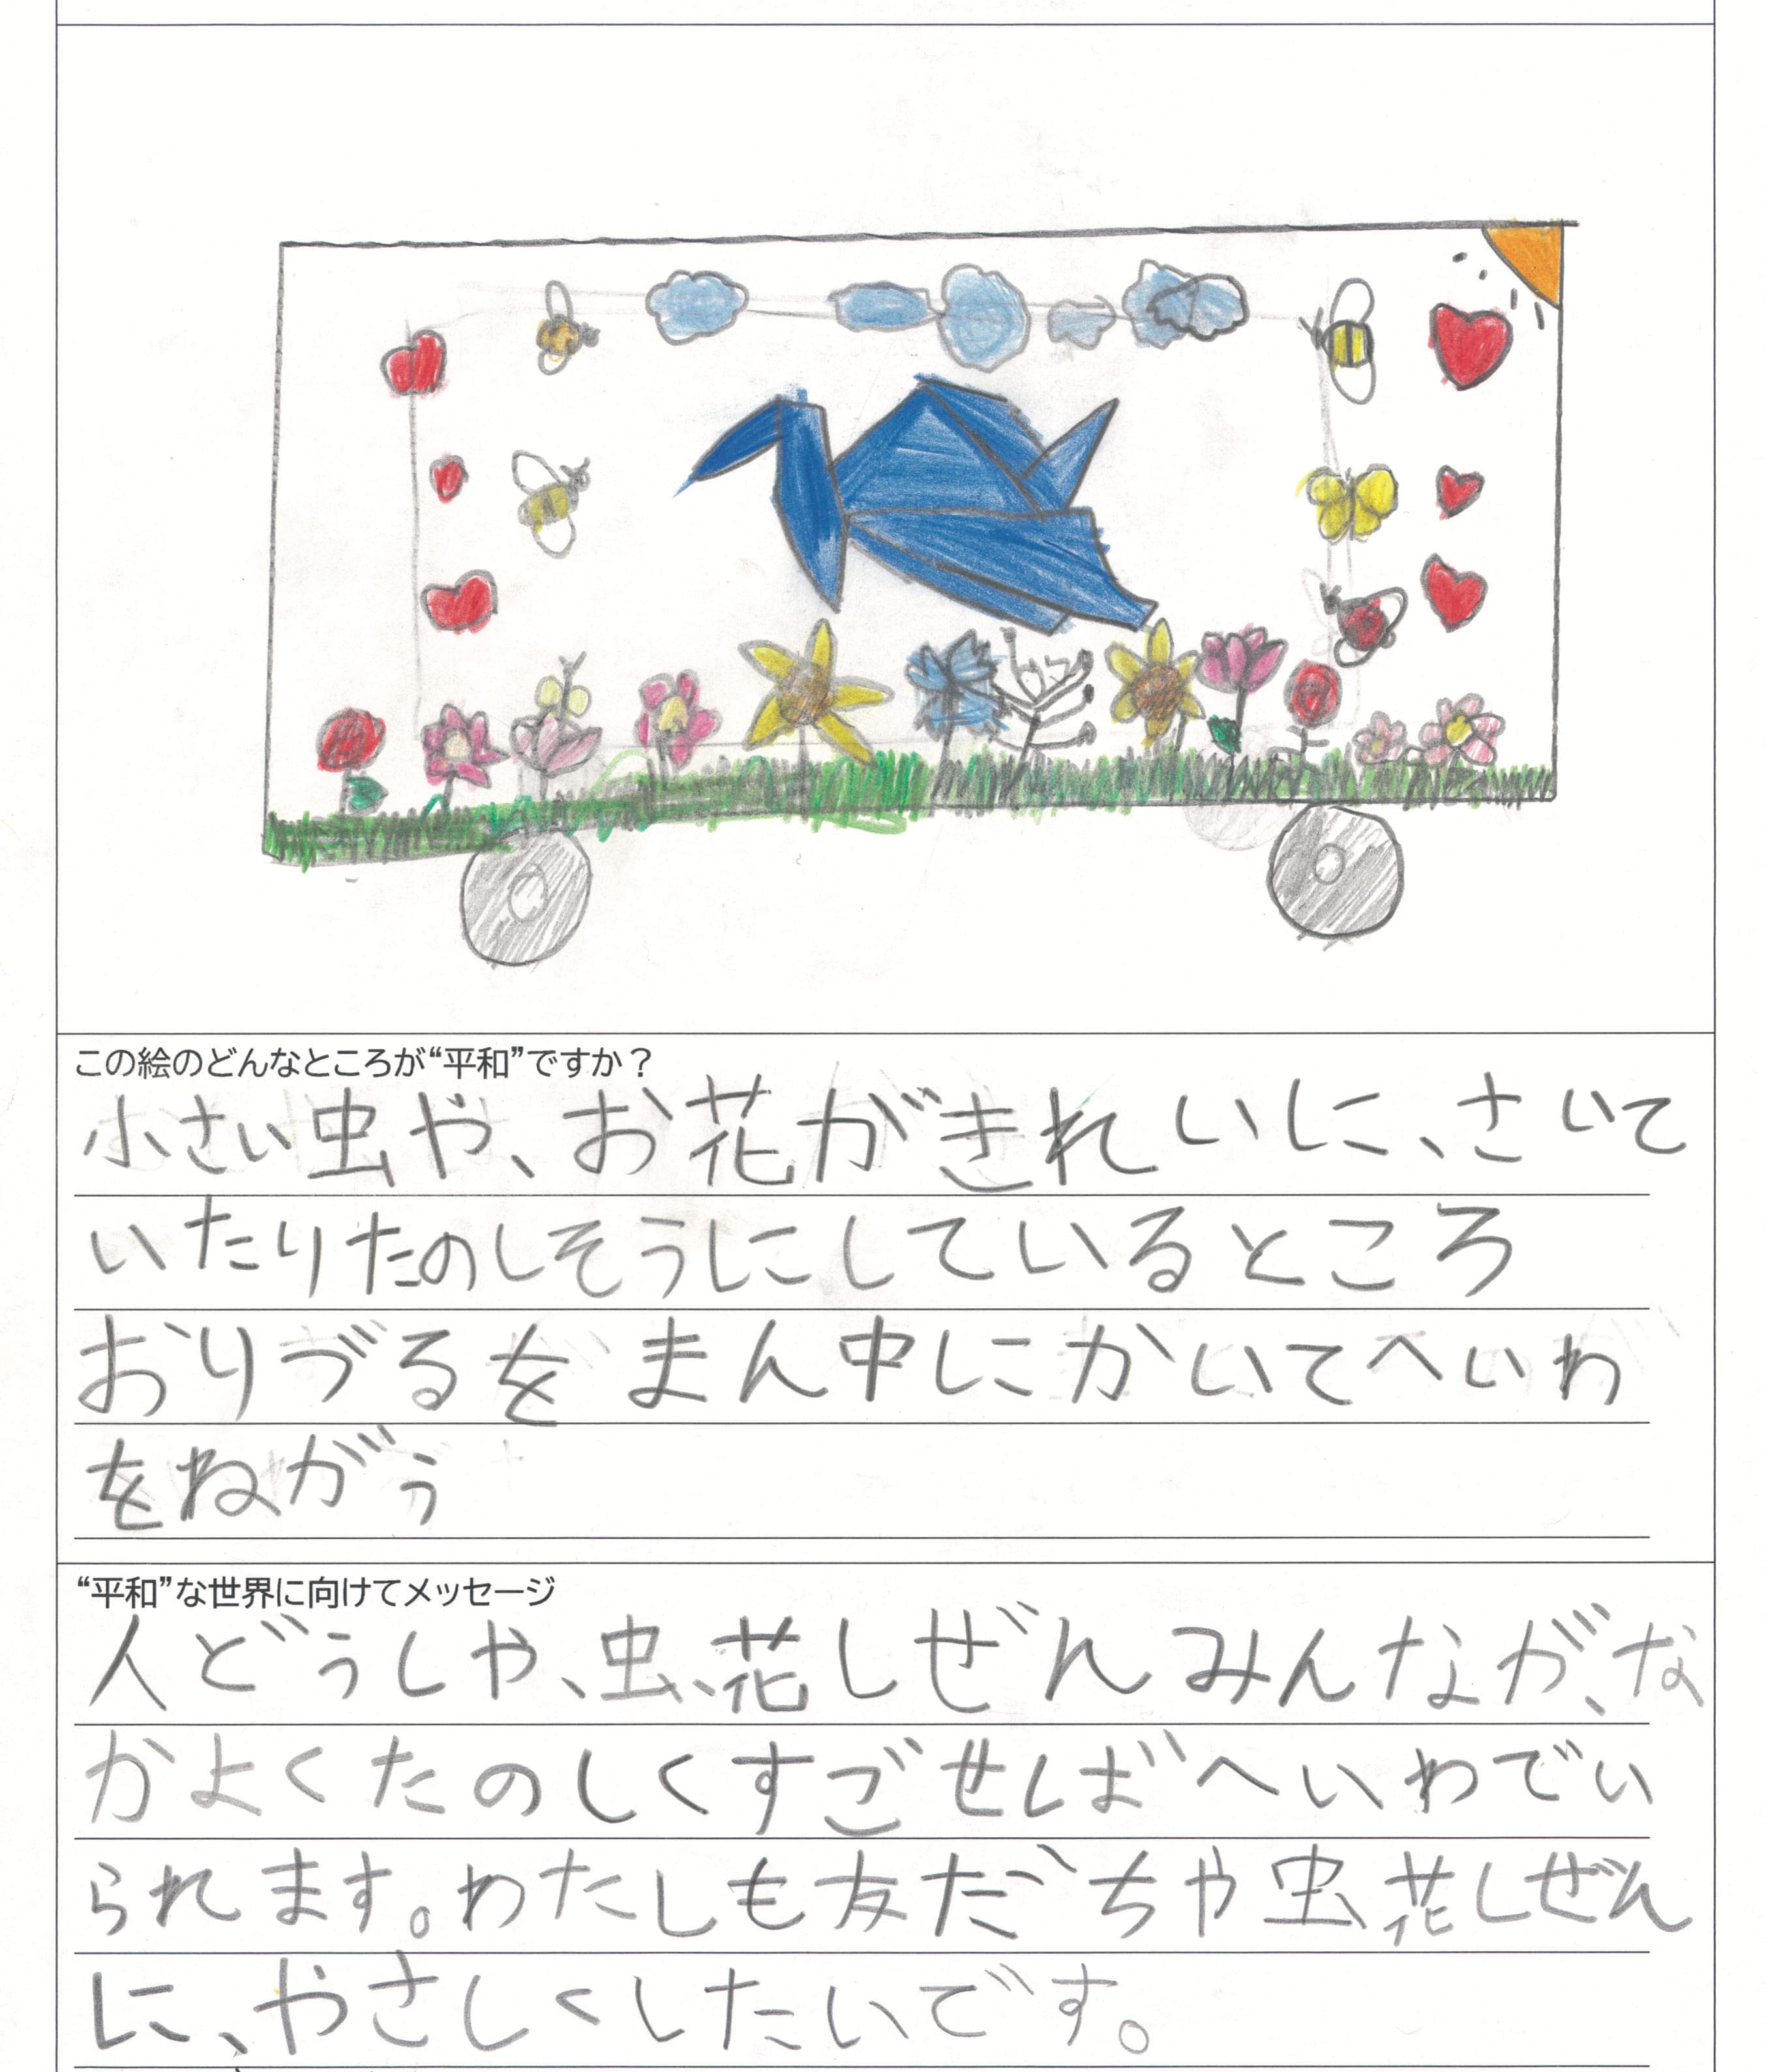 この絵のどんなところが“平和”ですか？
小さい虫や、お花がきれいに、さいて
いたりたのしそうにしているところ
おりづるをまん中にかいてへいわ
をねがう
“平和”な世界に向けてメッセージ
人どうしや、虫、花しぜんみんなが、な
かよくたのしくすごせばへいわでい
られます。わたしも友だちや虫、花しぜん
に、やさしくしたいです。